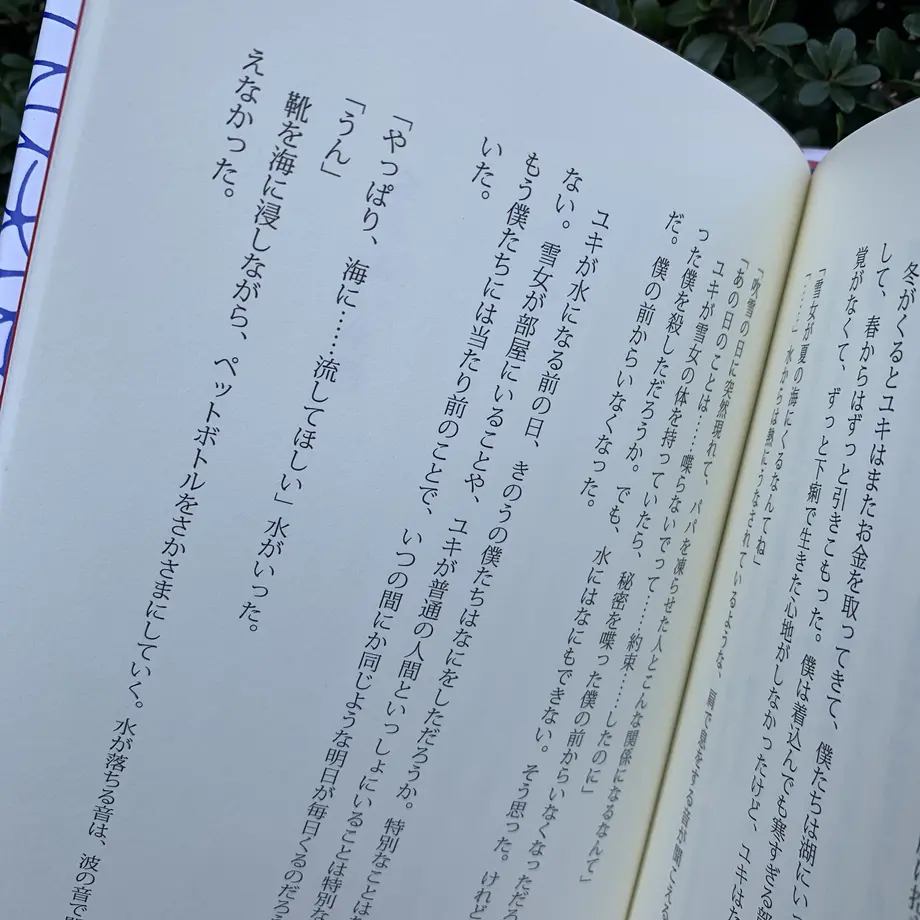 冬がくるとユキはまたお金を取ってきて、僕たちは湖にい
して、春からはずっと引きこもった。僕は着込んでも寒すぎる部
覚がなくて、ずっと下痢で生きた心地がしなかったけど、ユキは
「雪女が夏の海にくるなんてね」
「……」水からは熱にうなされているような、肩で息をする音が聞こえる
「吹雪の日に突然現れて、パパを凍らせた人とこんな関係になるなんて」
「あの日のことは……喋らないでって……約束……したのに」
ユキが雪女の体を持っていたら、秘密を喋った僕の前からいなくなっただろ
った僕を殺しただろうか。でも、水にはなにもできない。そう思った。けれど
だ。僕の前からいなくなった。
ユキが水になる前の日、きのうの僕たちはなにをしただろうか。特別なことは
ない。雪女が部屋にいることや、ユキが普通の人間といっしょにいることは特別な
もう僕たちには当たり前のことで、いつの間にか同じような明日が毎日くるのだろ
いた。
「やっぱり、海に……流してほしい」水がいった。
「うん」
靴を海に浸しながら、ペットボトルをさかさまにしていく。水が落ちる音は、波の音で
えなかった。